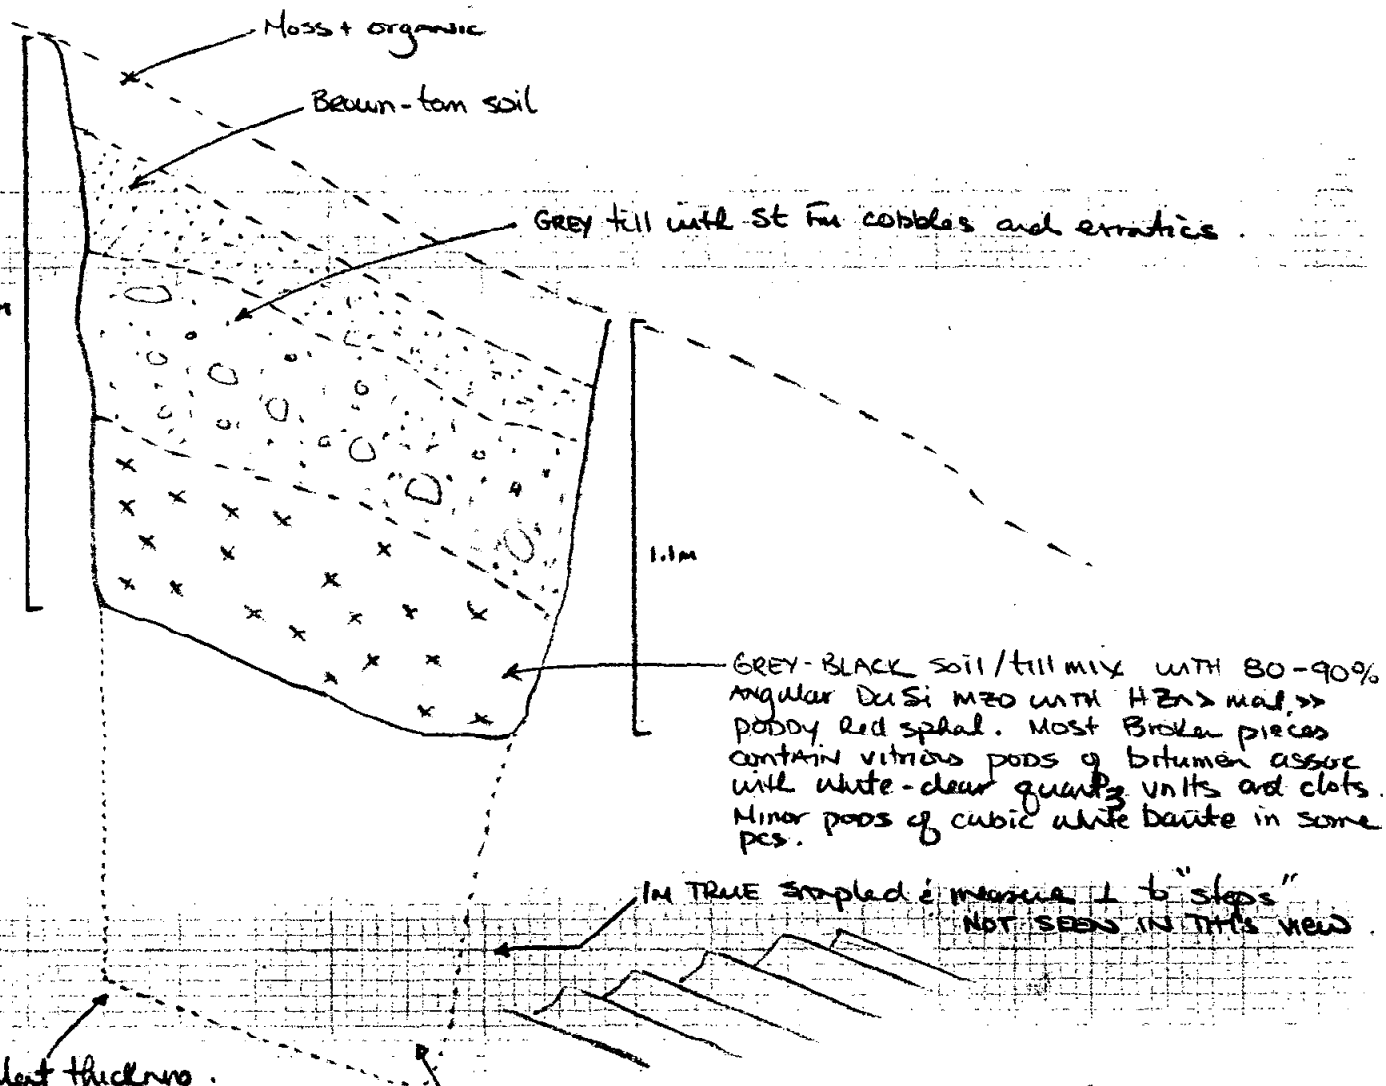 Moss + organic
Brown-tan soil
GREY till with St Fm cobbles and erratics.
M
1.1M
GREY-BLACK soil/till mix WITH 80-90%
Angular DuSi MZO WITH HZn > mal. >>
PODDY Red sphal. Most Broken pieces
contain vitrious pods of bitumen assoc
with white-clear quartz vnlts and clots.
Minor pods of cubic white barite in some
pcs.
1M TRUE sampled & measure ⊥ to "steps"
NOT SEEN IN THIS VIEW.
thickness.